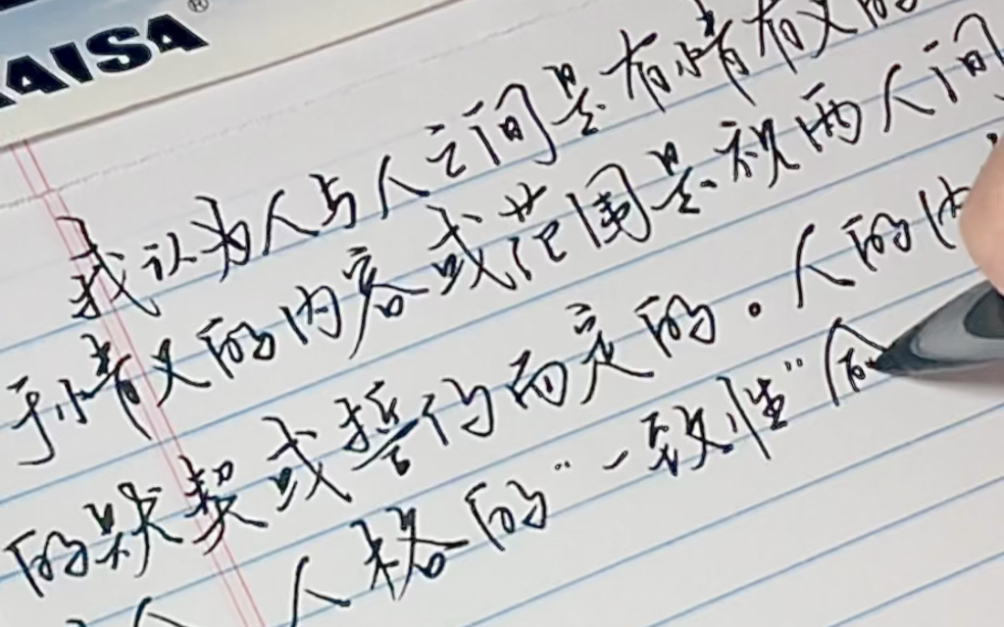 AISA®
我认为人与人之间是有情有义的
于情义的内容或范围是视两人间
的默契或誓约而定的。人的内
人格的“一致性”